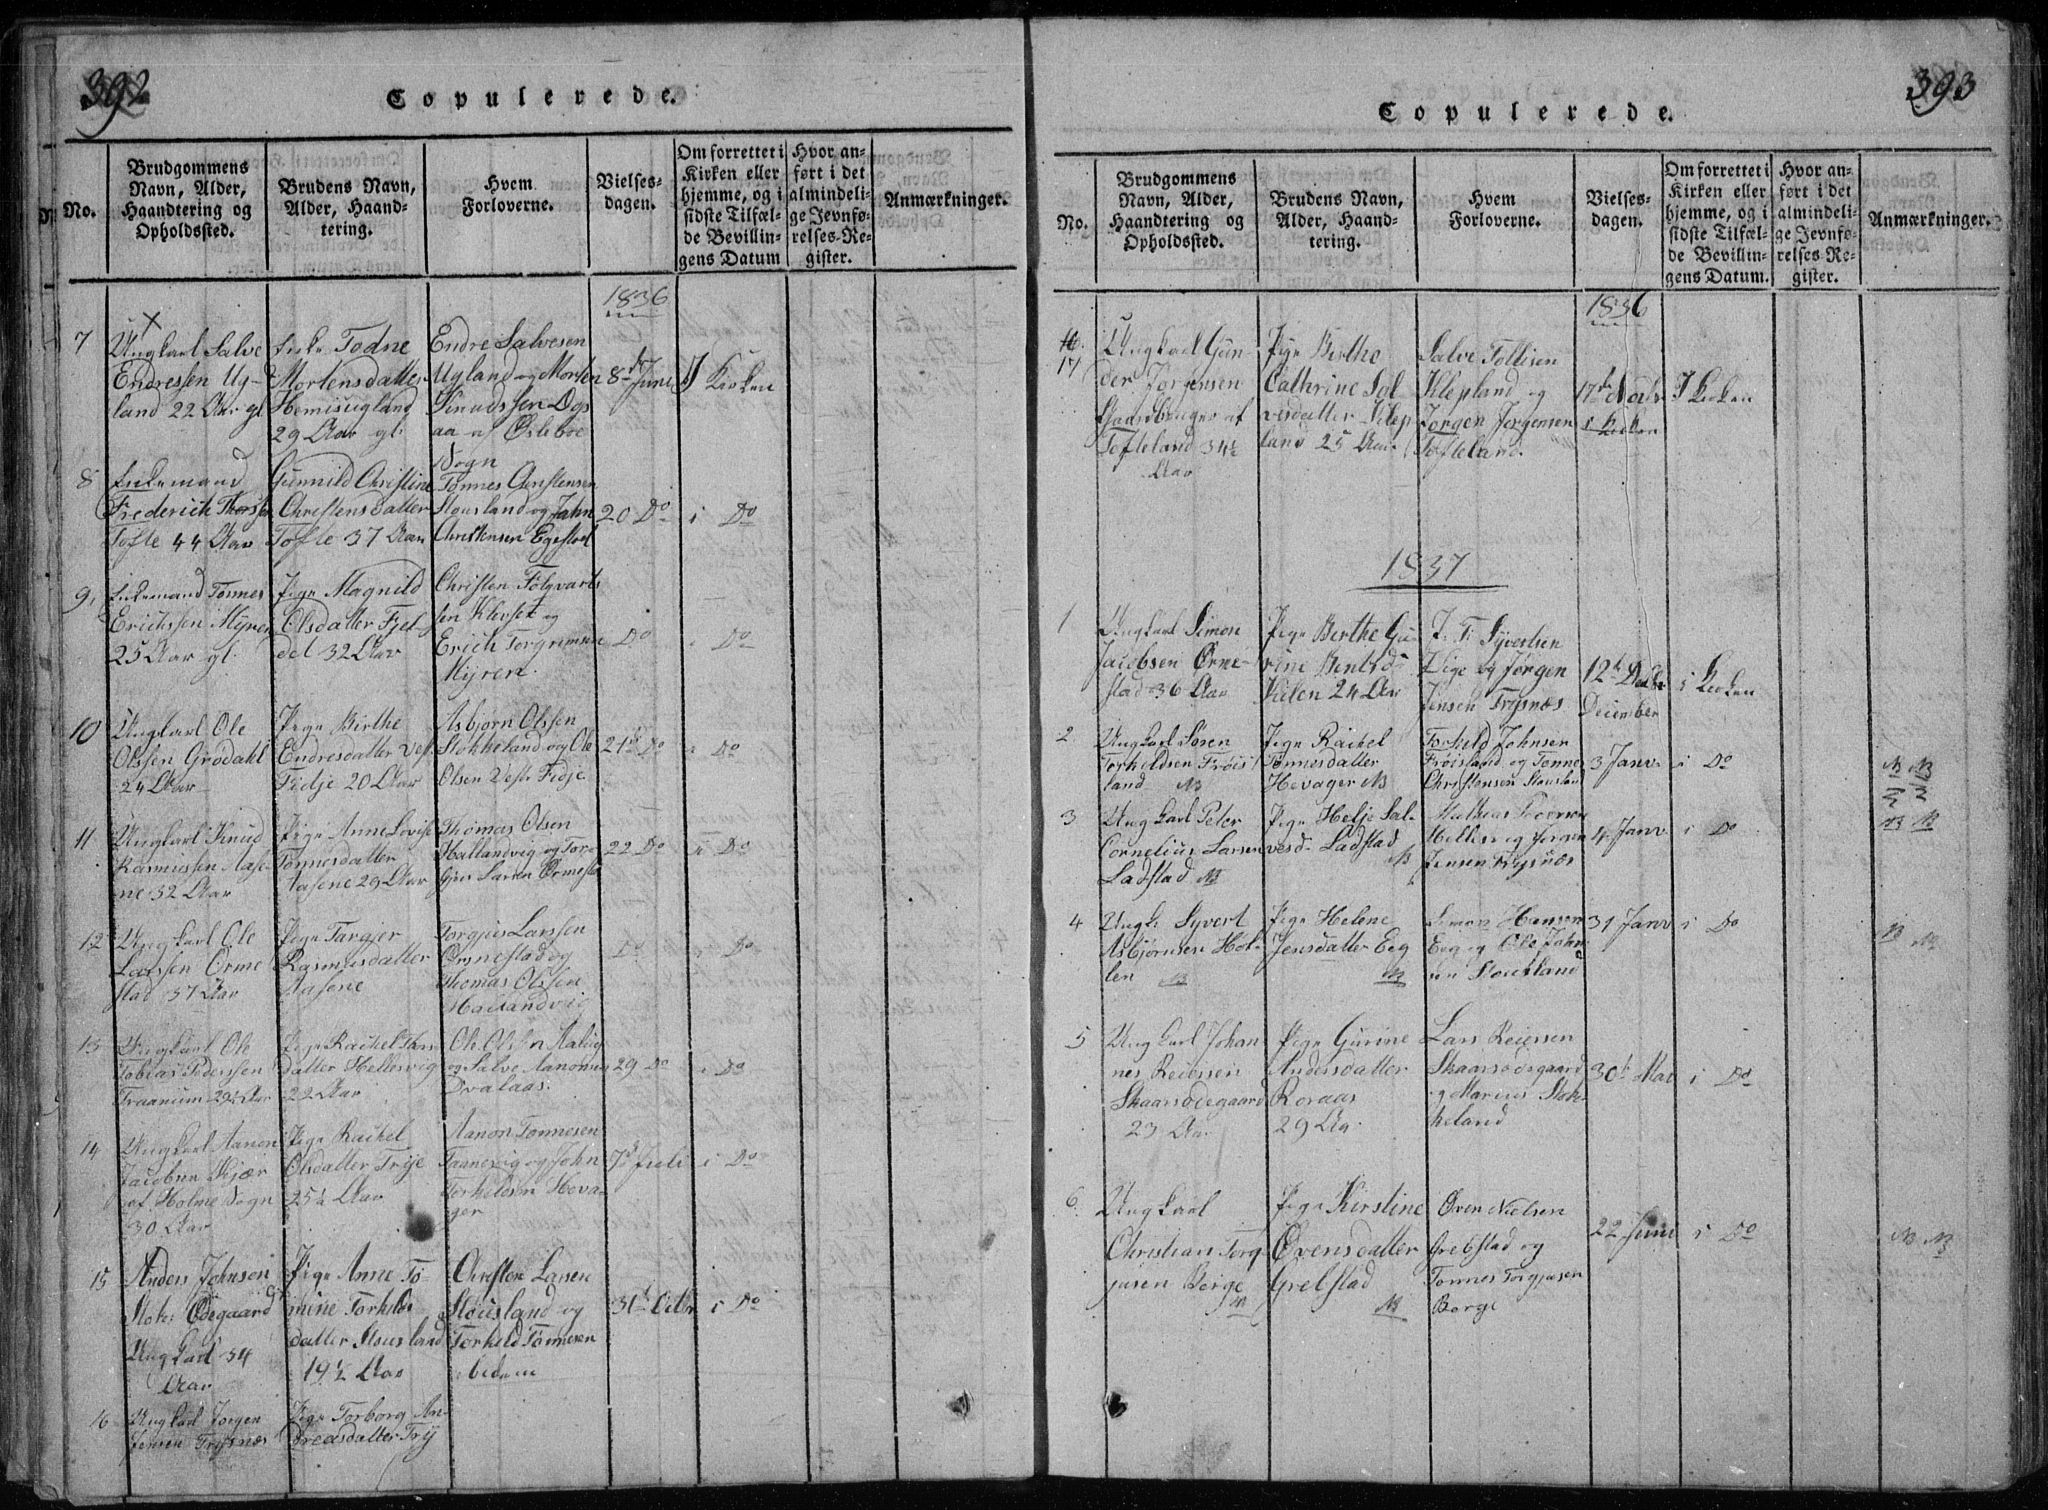 392
Copulerede.
No.
Brudgommens
Navn, Alder,
Haandtering og
Opholdssted.
Brudens Navn,
Alder, Haand-
tering.
Hvem
Forloverne.
Vielses-
dagen.
Om forrettet i
Kirken eller
hjemme, og i
sidste Tilfæl-
de Bevillin-
gens Datum
Hvor an-
ført i det
almindeli-
ge Jevnfø-
relses-Re-
gister.
Anmærkninger.
1836
7
Ungkarl Salve
Endressen Ug-
land 22 Aar gl.
Enke Todne
Mortensdatter
Hemisugland
29 Aar gl.
Endre Salvesen
Ugland og Morten
Knudssen Dgs
aa af Øslebøe
Sogn
8de Juni
I Kirken
8
Enkemand
Frederich Thorsen
Tofte 44 Aar
Gunnild Christine
Christensdatter
Tofte 37 Aar
Tønnes Christensen
Stousland og Jahn
Christensen Egestod
20 Do
i Do
9
Enkemand Tønnes
Erichssen Myren
25 Aar gl.
Pige Magnild
Olsdatter Fjel-
del 32 Aar
Christen Følqvarts
sen Klepset og
Erich Torgrimsen
Myren.
Do
Do
10
Ungkarl Ole
Olssen Grødahl
24 Aar
Pige Birthe
Endresdatter Vest
Fidje 20 Aar
Asbjørn Olssen
Stokkeland og Ole
Olsen Vest Fidje
21de Do
Do
11
Ungkarl Knud
Rasmussen Aase-
ne 32 Aar
Pige Anne Lovise
Tønnesdatter
Aasene 29 Aar
Thomas Olsen
Hallandvig og Tor-
gjus Larsen Ormestad
22 Do
i Do
12
Ungkarl Ole
Larssen Orme
stad 37 Aar
Pige Targjer
Rasmusdatter
Aasene
Torgjus Larssen
Ormestad og
Thomas Olssen
Hallandvig
Do
Do
13
Ungkarl Ole
Tobias Pederssen
Traanum 29½ Aar
Pige Rachel Thors
datter Hellesvig
22 Aar
Ole Olssen Aalvig
og Salve Aanonsen
Dvalaas
29 Do
Do
14
Ungkarl Aanon
Jacobsen Kjær
af Holme Sogn
30 Aar
Pige Rachel
Olsdatter Trije
25½ Aar
Aanon Tønnesen
Taanevig og John
Torkeldsen Heva-
ger
7de Juli
i Do
15
Anders Johnson
Stok: Ødegaard
Ungkarl 34
Aar
Pige Anne To-
mine Torkilds
datter Stousland
19½ Aar
Christen Larsen
Stousland og
Torkeld Tønnesen
ibidem
31te Octbr
i Do
16
Ungkarl Jørgen
Jensen Trysnæs
Pige Torborg An-
dreasdatter Try
393
Copulerede.
No.
Brudgommens
Navn, Alder,
Haandtering og
Opholdssted.
Brudens Navn,
Alder, Haand-
tering.
Hvem
Forloverne.
Vielses-
dagen.
Om forrettet i
Kirken eller
hjemme, og i
sidste Tilfæl-
de Bevillin-
gens Datum.
Hvor an-
ført i det
almindeli-
ge Jevnfø-
relses-Re-
gister.
Anmærkninger.
1836
17
Ungkarl Gun-
der Jørgensen
Gaardbruger af
Tofteland 34½
Aar
Pige Birthe
Cathrine Sal
vesdatter Klep
land 25 Aar
Salve Tollisen
Klepland og
Jørgen Jørgensen
Tofteland.
17de Novbr
i Kirken
I Kirken
1837
1
Ungkarl Simon
Jacobsen Orme-
stad 36 Aar
Pige Berthe Gu-
rine Bentsd-
Vielen 24 Aar
J. F. Syvertsen
Lige og Jørgen
Jensen Trysnæs
12te
December
i Kirken
2
Ungkarl Søren
Torkeldsen Frøis
land NB
Pige Rachel
Tønnesdatter
Hevager NB
Torkeld Johnsen
Frøisland og Tønnes
Christensen Stousland
3 Janv
i Do
NB NB
3
Ungkarl Peter
Cornelius Larsen
Ladstad NB
Pige Helje Sal-
vesd- Ladstad
NB
Mathias
og Jørgen
Jensen Trysnæs
4 Janv
i Do
NB NB
4
Ungk: Syvert
Asbjørnsen Hol-
len NB
Pige Helene
Jensdatter Eeg
NB
Simon Hansen
Eeg og Ole John
sen Stousland
31 Janv
i Do
NB NB
5
Ungkarl Johan
nes Reiersen
Skaarsødegaard
23 Aar
Pige Gurine
Andersdatter
Roraas
29 Aa.
Lars Reiersen
Skaarsødegaard
og Marius Stok-
keland
30te Mai
i Do
6
Ungkarl
Christian Torg
jusen Berge
NB
Pige Kirstine
Ovensdatter
Grebstad
NB
Oven Nielsen
Grebstad og
Tønnes Torgjusen
Berge
22 Juni
i Do
NB NB